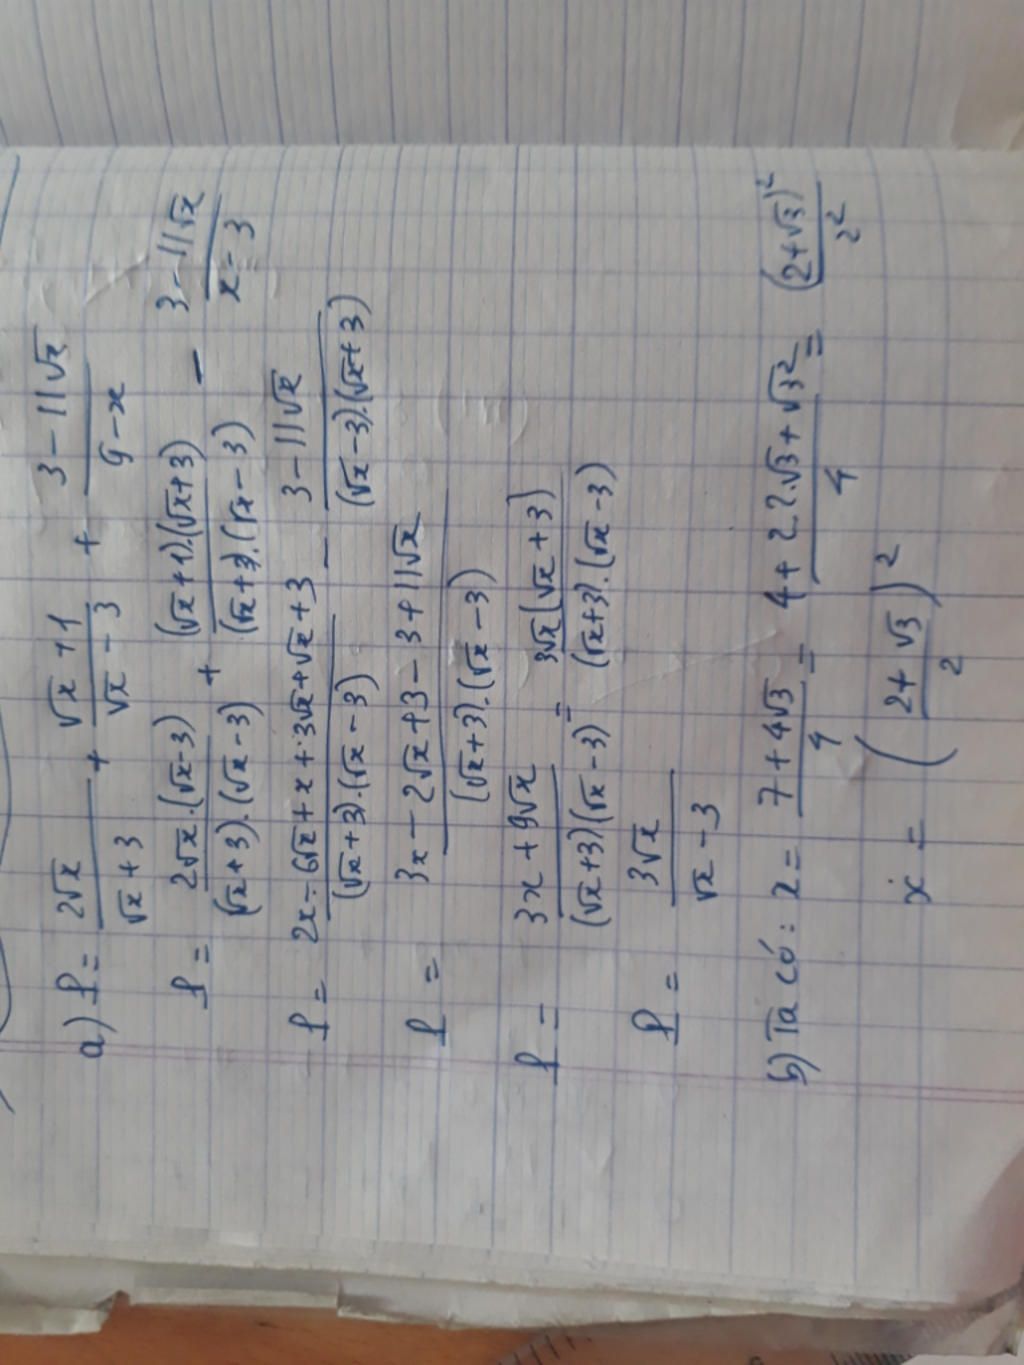 a) P = \frac{2\sqrt{x}}{\sqrt{x}+3} + \frac{\sqrt{x}+1}{\sqrt{x}-3} + \frac{3-11\sqrt{x}}{9-x}
P = \frac{2\sqrt{x}.(\sqrt{x}-3)}{(\sqrt{x}+3).(\sqrt{x}-3)} + \frac{(\sqrt{x}+1).(\sqrt{x}+3)}{(\sqrt{x}+3).(\sqrt{x}-3)} - \frac{3-11\sqrt{x}}{x-3}
P = \frac{2x-6\sqrt{x}+x+3\sqrt{x}+\sqrt{x}+3}{(\sqrt{x}+3).(\sqrt{x}-3)} - \frac{3-11\sqrt{x}}{(\sqrt{x}-3).(\sqrt{x}+3)}
P = \frac{3x-2\sqrt{x}+3-3+11\sqrt{x}}{(\sqrt{x}+3).(\sqrt{x}-3)}
P = \frac{3x+9\sqrt{x}}{(\sqrt{x}+3)(\sqrt{x}-3)} = \frac{3\sqrt{x}(\sqrt{x}+3)}{(\sqrt{x}+3).(\sqrt{x}-3)}
P = \frac{3\sqrt{x}}{\sqrt{x}-3}
b) Ta có: x = \frac{7+4\sqrt{3}}{4} = \frac{4+2.2.\sqrt{3}+\sqrt{3}^2}{4} = \frac{(2+\sqrt{3})^2}{2^2}
x = (\frac{2+\sqrt{3}}{2})^2